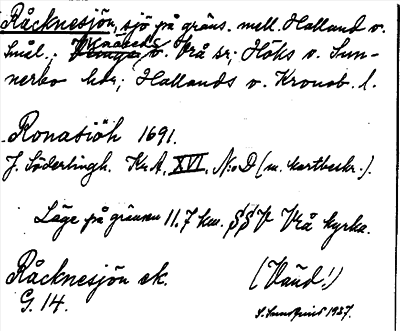 Råcknesjön, sjö på gräns. mell. Halland o.
Smål.; Knäreds o. Vrå sr; Höks o. Sun-
nerbo hdr; Hallands o. Kronob. l.
Ronasiöh 1691.
J. Söderlingh. Kr.A. XVI. N:o D (m. kartbeskr.).
Läge på gränsen 11.7 km. SSV Vrå kyrka.
Råcknesjön ek.
(Vänd!)
G. 14.
1927.